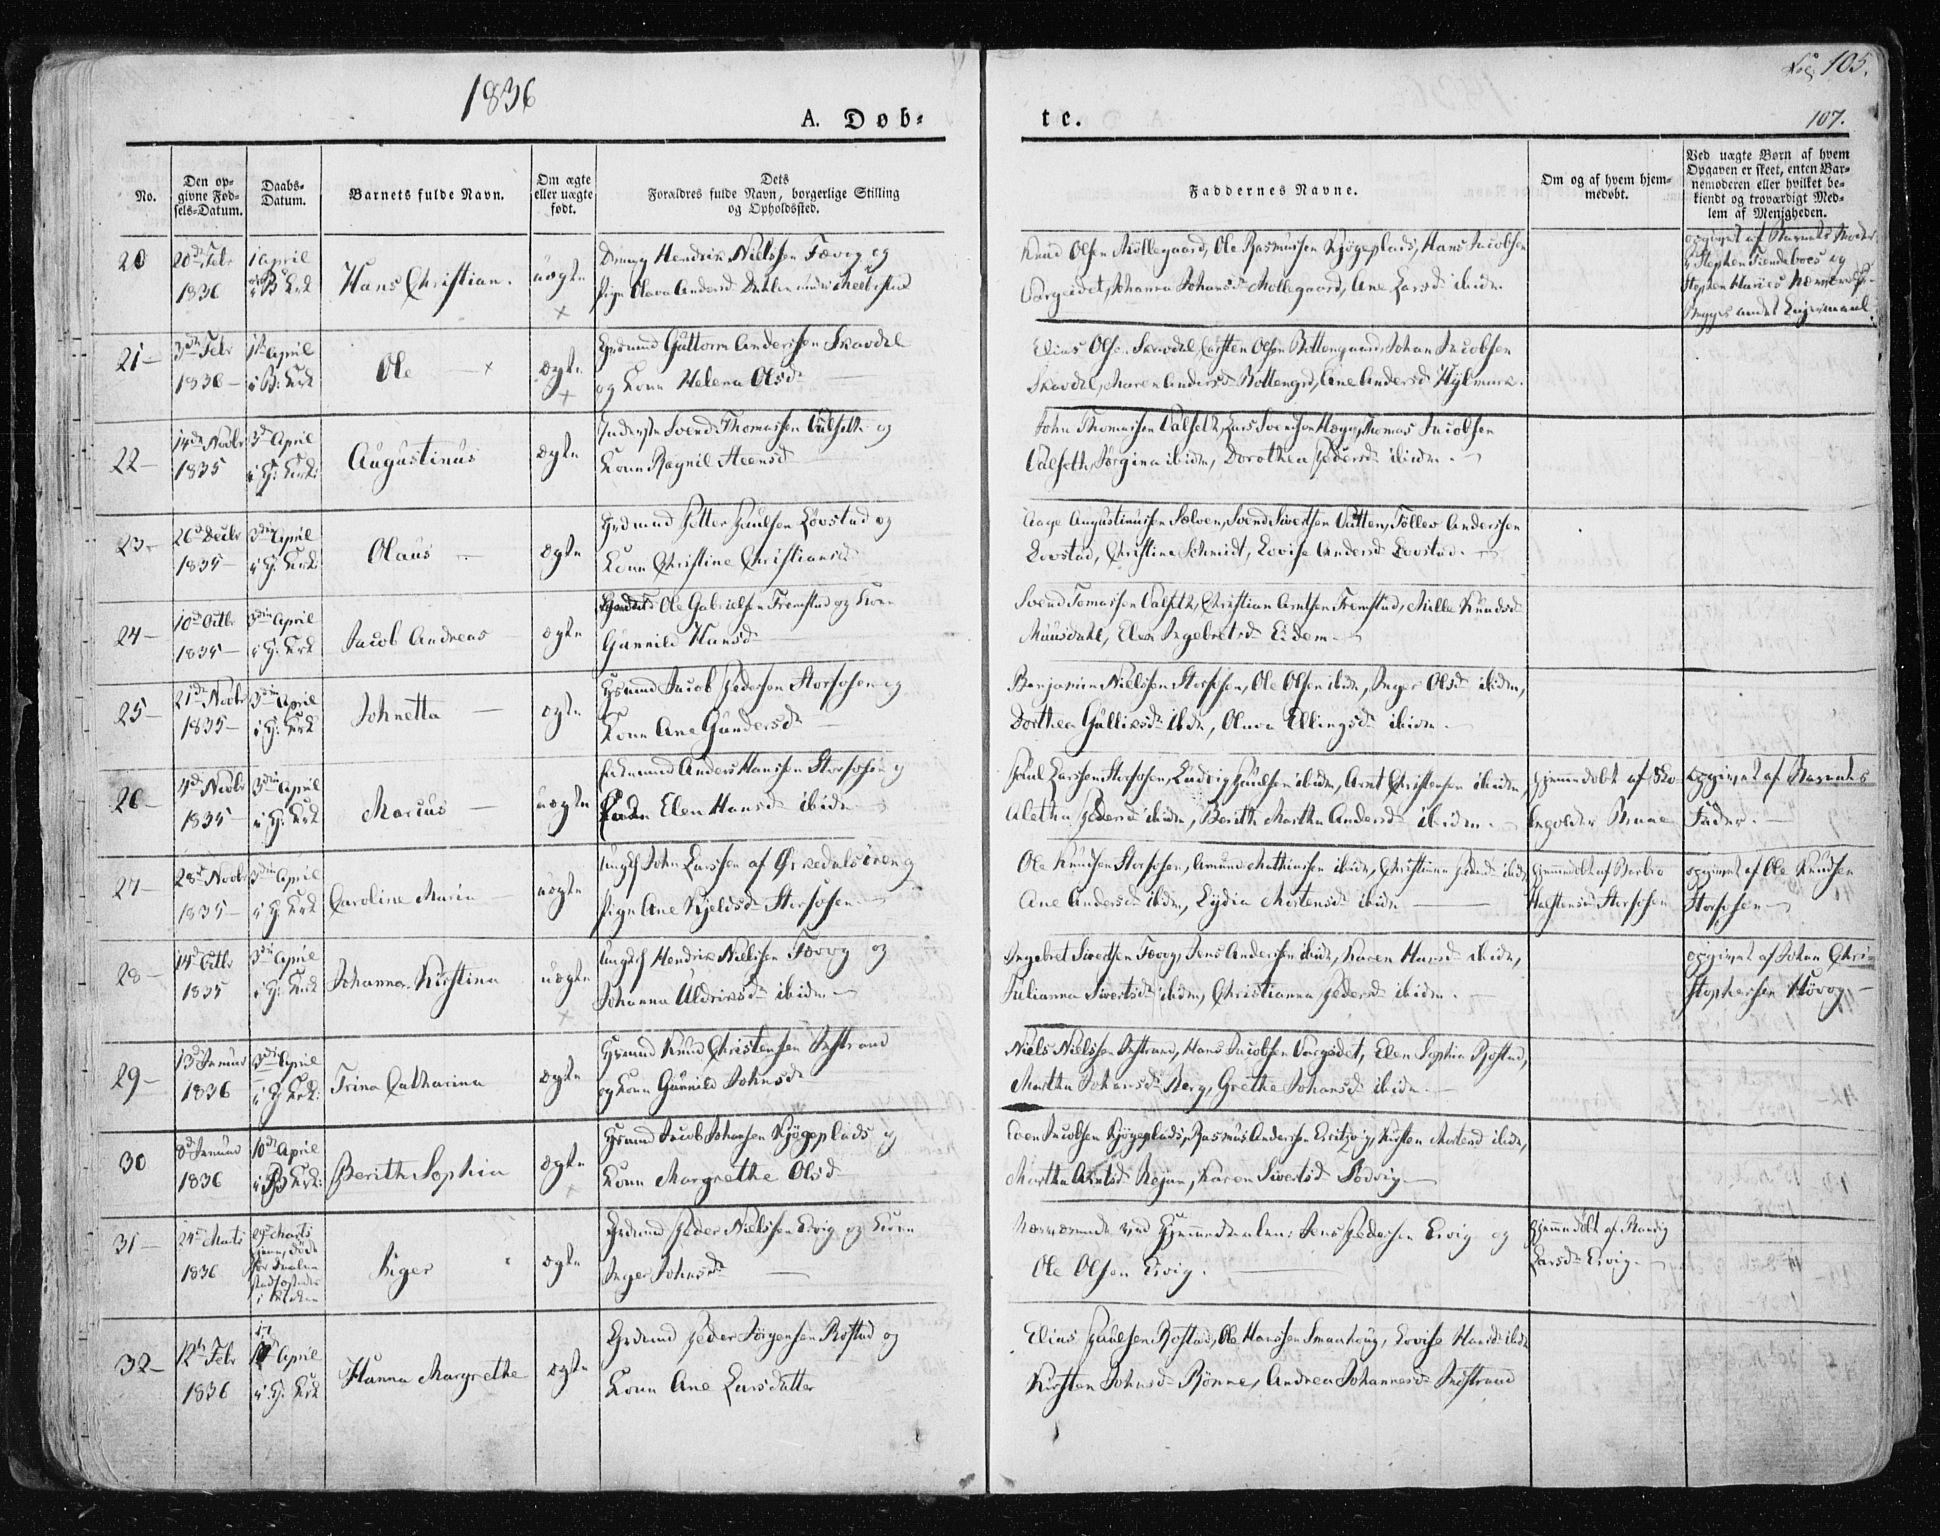 1836
Log 105.
A. Døb-
te.
107.
No.
Den op-
givne Fød-
sels-Datum.
Daabs-
Datum.
Barnets fulde Navn.
Om ægte
eller uægte
født.
Dets
Forældres fulde Navn, borgerlige Stilling
og Opholdssted.
Faddernes Navne.
Om og af hvem hjem-
medøbt.
Ved uægte Børn af hvem
Opgaven er skeet, enten Bar-
nemoderen eller hvilket be-
kiendt og troværdigt Med-
lem af Menigheden.
20
20de Febr
1836
1 April
i B: Krk
Hans Christian.
uægte
Dreng Hendrik Nielssen Tævog og
Pige Olava Andersd
Knud Olsen Møllegaard, Ole Rasmussen Kjøgeplads, Hans Jacobsen
Vargeidet, Johanna Johansd Mollegaard, Ane Larsd ibidem
opgivet af Barnets Moder
21-
3de Febr
1836-
1te April
i B: Krk
Ole
ægte
Grdmand Guttorm Anderssen Skavdal
og Kone Helena Olsd
Elias Olsen Skavdal, Carsten Olsen Bottengaard, Johan Jacobsen
Skavdal, Maren Andersd Bottengrd, Ane Andersd Hylmark.
22-
14de Novbr
1835
3die April
i H: Kirk:
Augustinus
ægte
Inderste Svend Thomassen Valseth og
Kone Ragnil Steensd
John Thomassen Valseth, Lars Svendsen Hage, Thomas Jacobsen
Valseth, Jørgina ibidem, Dorothea Pedersd ibidem.
23-
26de Decbr
1835-
3die April
i H: Kirk:
Olaus
ægte
Grdmand Petter Paulsen Lovstad og
Kone Christine Christiansd
Aage Augustinussen Sælven, Svend Sivertsen Vatten, Tøllev Anderssen
Lovstad, Christina Schmidt, Lovise Andersd Lovstad.
24-
10de Octbr
1835-
3die April
i H: Krk
Jacob Andreas
ægte
Ole Gabrielsen Fremstad og Kone
Gunnild Hansd
Svend Tomassen Valseth, Christian Arntsen Fremstad, Mille Knudsd
Muusdahl, Elen Ingebretsd Eidem
25-
21de Novbr
1835-
3die April
i H: Krk
Johnetta
ægte
Grdmand Jacob Pedersen Storfosen og
Kone Ane Gundersd
Benjamin Nielssen Storfosen, Ole Olsen ibidem, Inger Olsd ibidem,
Dorthea Gulliksd ibidm, Olava Ellingsd ibidem
26-
4de Novbr
1835
3die April
i H: Krk
Marius
uægte
Anders Hanssen Storfosen og
Elen Hansd ibidem
Paul Larssen Storfosen, Ludvig Paulsen ibidm, Arnt Christensen ibidem,
Aletha Pedersd ibidm, Berith Martha Andersd ibidem.
Hjemmedøbt af Sko-
leholder Brune
Opgivet af Barnets
Fader.
27-
28de Novbr
1835-
3die April
i H: Krk
Caroline Maria
uægte
Ungkl John Larssen af Ørkedalsøren og
Pige Ane Kjeldsd Storfosen
Ole Knudsen Storfosen, Amund Mathiassen ibidem, Christianna Pedersd ibidm
Ane Andersd ibidm, Lydia Mortensd ibidm
Hjemmedøbt af Barbro
Halstensd Storfosen
opgivet af Ole Knudsen
Storfosen
28-
14de Octbr
1835
3die April
i H: Krk
Johanna Kirstina
uægte
Ungkl Hendrik Nielssen Tævog og
Johanna Uldriksd ibidem
Ingebret Sivertsen Tævog, Jens Anderssen ibidm, Karen Hansd ibidm,
Julianna Sivertsd ibidm, Christianna Pedersd ibidem.
opgivet af Johan Chri-
stophersen Høvog
29-
13de Januar
1836
3die April
i H: Krk:
Trina Catharina
ægte
Grdmand Knud Christensen Indstrand
og Kone Gunnild Johnsd
Niels Nielssen Indstrand, Hans Jacobsen Vargeidet, Elen Sophia Rostad,
Martha Johansd Berg, Grethe Johansd ibidm
30
8de Januar
1836
10de April
i B: Krk:
Berith Sophia
ægte
Grdmand Jacob Johansen Kjøgeplads og
Kone Margrethe Olsd
Even Jacobsen Kjøgeplads, Rasmus Anderssen Ervig, Kirsten Mortensd ibidm,
Martha Arntsd Rejan, Karen Sivertsd Sodvig
31-
24de Marts
1836
29de Marts
Inger
ægte
Grdmand Peder Nielssen Ervig og Kone
Inger Johnsd
Nærværende ved Hjemmedaaben: Jens Pedersen Ervig og
Ole Olsen Ervig.
Hjemmedøbt af
Larsd Ervig
32-
12te Febr
1836
17 April
i H: Krk
Hanna Margrethe
ægte
Grdmand Peder Jørgensen Rostad og
Kone Ane Larsdatter
Elias Paulsen Rostad, Ole Hanssen Smanhaug, Lovise Hansd ibidm
Kirsten Johnsd Rønne, Andrea Johannesd Indstrand